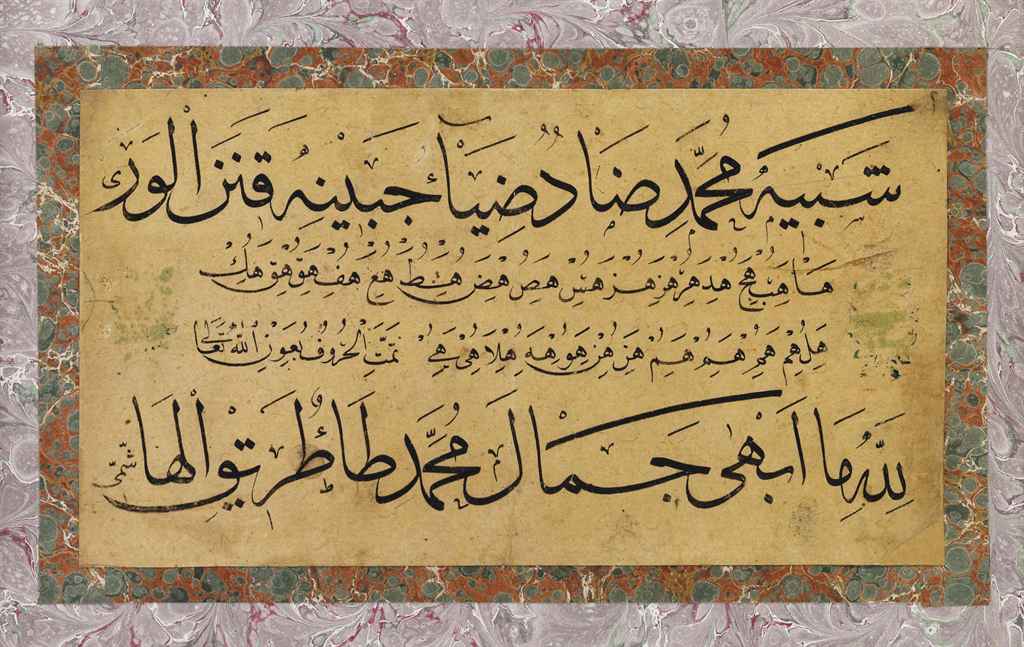 شبيه محمد ضاد ضياء جبينه قنن الورى
ها هب هج هد هر هز هس هص هض هط هع هف هو هق هك
هل هم هم هم هم هن هن هو هه هلا هى هي تمت الحروف بعون الله تعالى
لله ما ابهى جمال محمد طاء طريق الها